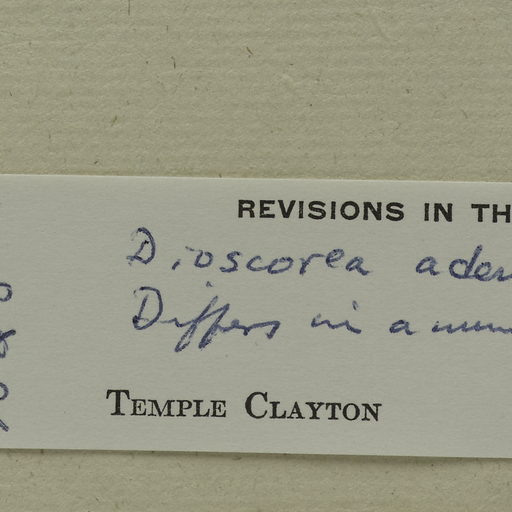 REVISIONS IN TH
Dioscorea aden
Differs in a num
TEMPLE CLAYTON